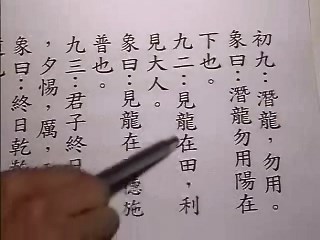 初九：潛龍，勿用。
象曰：潛龍勿用陽在
下也。
九二：見龍在田，利
見大人。
象曰：見龍在 德施
普也。
九三：君子終日
，夕惕，厲，
象曰：終日乾乾